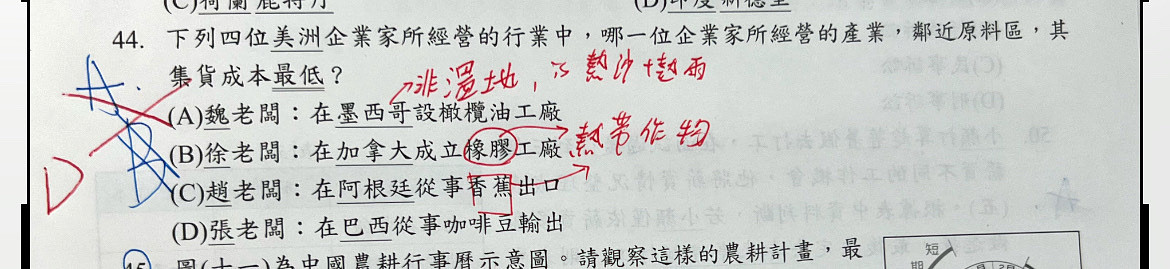 (C)荷蘭鹿特丹
(D)印度新德里
44. 下列四位美洲企業家所經營的行業中，哪一位企業家所經營的產業，鄰近原料區，其
集貨成本最低？
非溫地，乃熱沙+熱雨
(A)魏老闆：在墨西哥設橄欖油工廠
(B)徐老闆：在加拿大成立橡膠工廠
熱帶作物
(C)趙老闆：在阿根廷從事香蕉出口
(D)張老闆：在巴西從事咖啡豆輸出
A
B
D
45 圖(十一)為中國農耕行事曆示意圖。請觀察這樣的農耕計畫，最
短
期